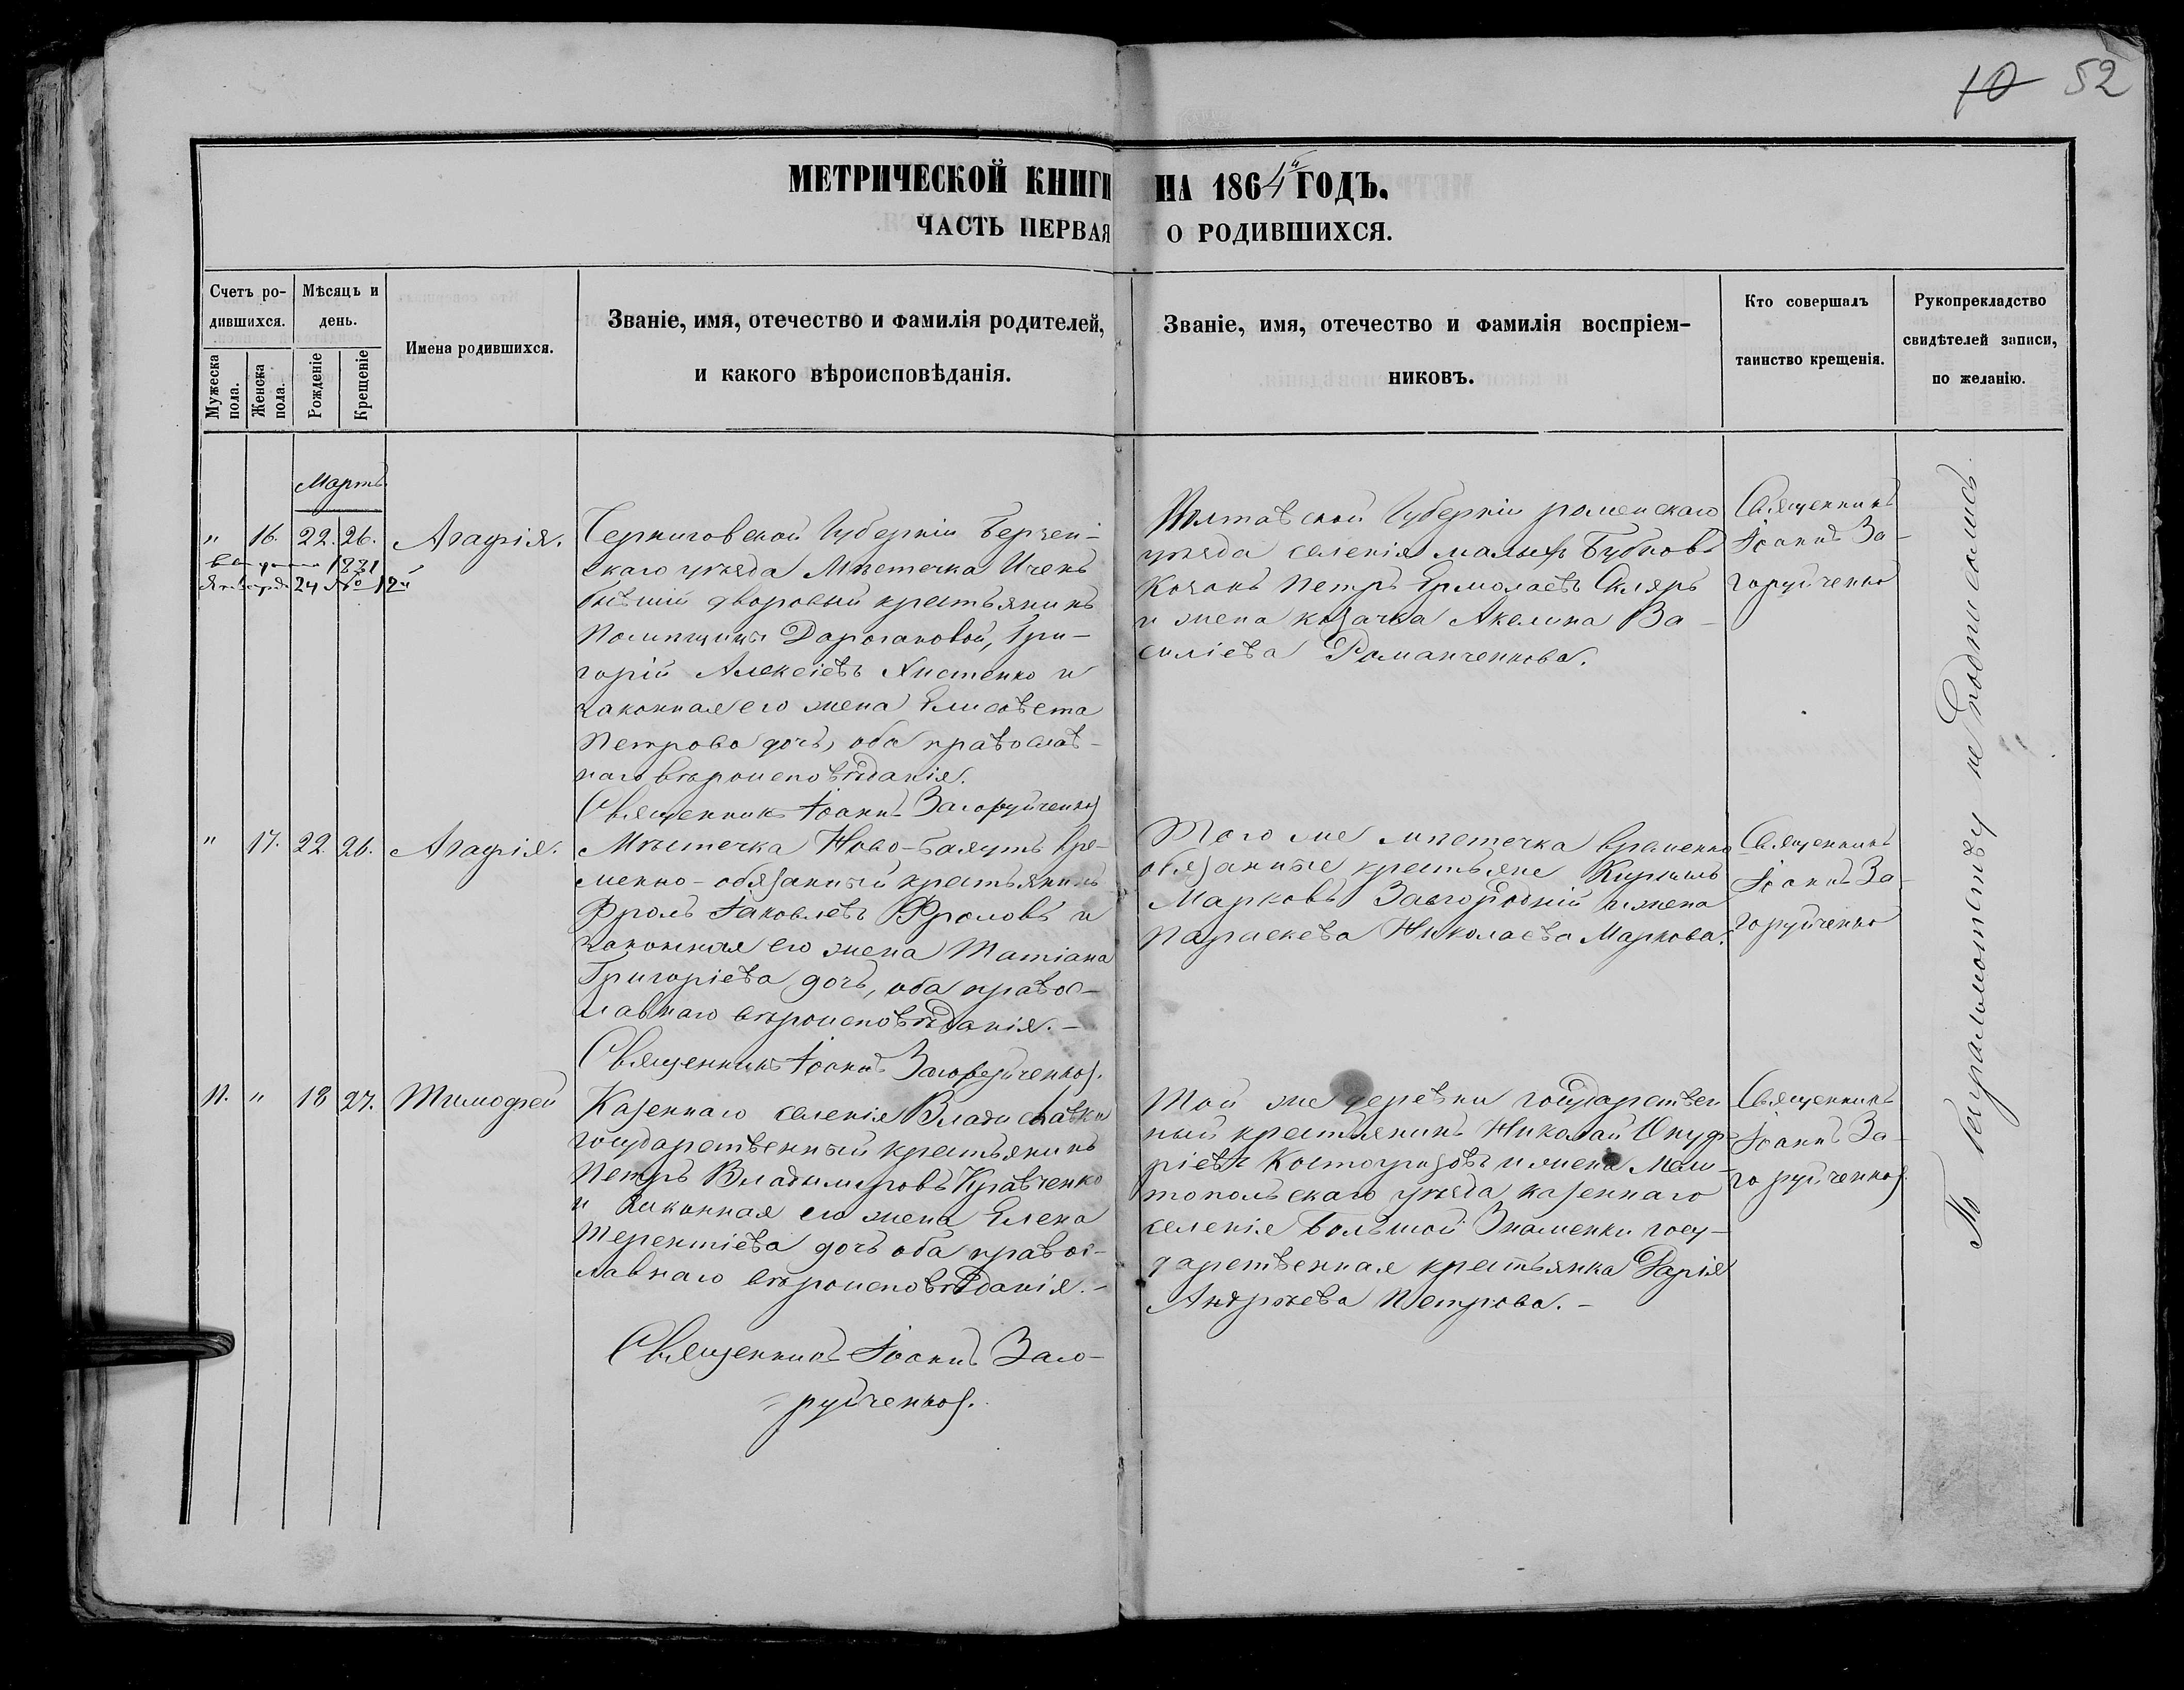 10 52
МЕТРИЧЕСКОЙ КНИГИ НА 1864й ГОДЪ.
ЧАСТЬ ПЕРВАЯ О РОДИВШИХСЯ.
Счетъ ро-
дившихся.
Мужеска пола.
Женска пола.
Мѣсяцъ и
день.
Рожденіе
Крещеніе
Имена родившихся.
Званіе, имя, отечество и фамилія родителей,
и какого вѣроисповѣданія.
Званіе, имя, отечество и фамилія воспріем-
никовъ.
Кто совершалъ
таинство крещенія.
Рукоприкладство
свидѣтелей записи,
по желанію.
Мартъ
" 16. 22. 26. Агафія.
1881
24 № 12й
Черниговской Губерніи Берзен-
скаго уѣзда Мѣстечка Ичень
бывшій дворовый крестьянинъ
Помѣщицы Дарагановой, Гри-
горій Алексіевъ Хистенко и
законная его жена Елисавета
Петрова дочь, оба православ-
наго вѣроисповѣданія.
Священникъ Іоаннъ Загоруйченко
Полтавской Губерніи роменскаго
уѣзда селенія малыхъ Бубновъ
Козакъ Петръ Ермолаевъ Скляръ
и жена козачка Акелина Ва-
силіева Романченкова.
Священникъ
Іоаннъ За-
горуйченко
" 17. 22. 26. Агафія.
Мѣстечка Ново-Баяутъ вре-
менно-обязанный крестьянинъ
Фролъ Яковлевъ Фроловъ и
законная его жена Татіана
Григоріева дочь, оба правос-
лавнаго вѣроисповѣданія. -
Священникъ Іоаннъ Загоруйченко.
Того же мѣстечка временно
обязанные крестьяне Кирилъ
Марковъ Завгородній и жена
Параскева Николаева Маркова.
Священникъ
Іоаннъ За-
горуйченко
11. " 18 27. Тимофей
Казеннаго селенія Владиславки
государственный крестьянинъ
Петръ Владимировъ Кравченко
и законная его жена Елена
Терентіева дочь оба правос-
лавнаго вѣроисповѣданія. -
Священникъ Іоаннъ Заго-
руйченко.
Той же деревни государствен
ный крестьянинъ Николай Онуф-
ріевъ Костогризовъ и жена Мели-
топольскаго уѣзда казеннаго
селенія Большой Знаменки госу-
дарственная крестьянка Дарія
Андрѣева Петрова. -
Священникъ
Іоаннъ За-
горуйченко.
По безграмотству не подписались.